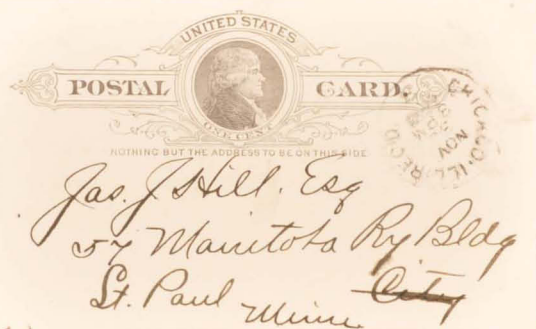 UNITED STATES
POSTAL CARD.
ONE CENT
NOTHING BUT THE ADDRESS TO BE ON THIS SIDE
CHICAGO, ILL. REC'D
NOV
Jas. J Hill. Esq
57 Manitoba Ry Bldg
City
St. Paul Minn.